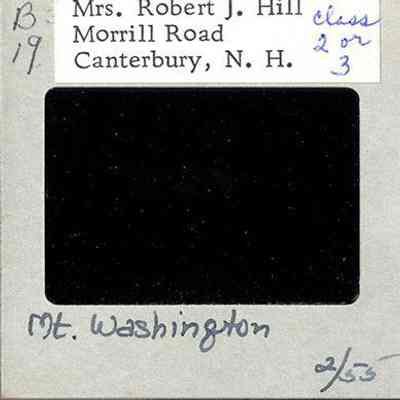 B-
19
Mrs. Robert J. Hill
Morrill Road
Canterbury, N. H.
class
2 or
3
Mt. Washington
2/55